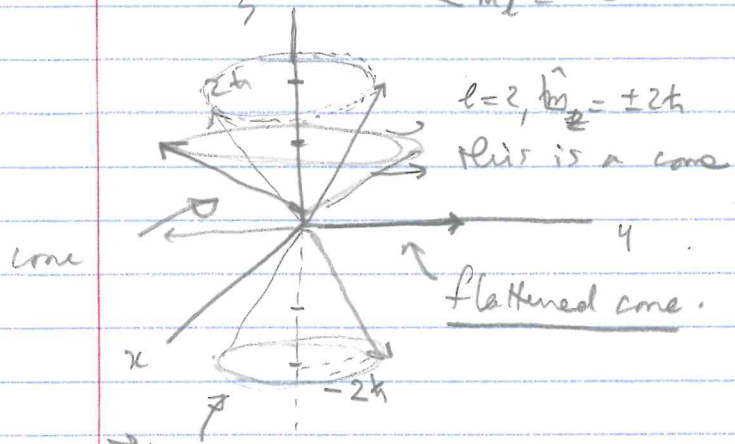 2ħ
l=2, m̂_z = ±2ħ
this is a cone
cone
y
flattened cone.
x
-2ħ